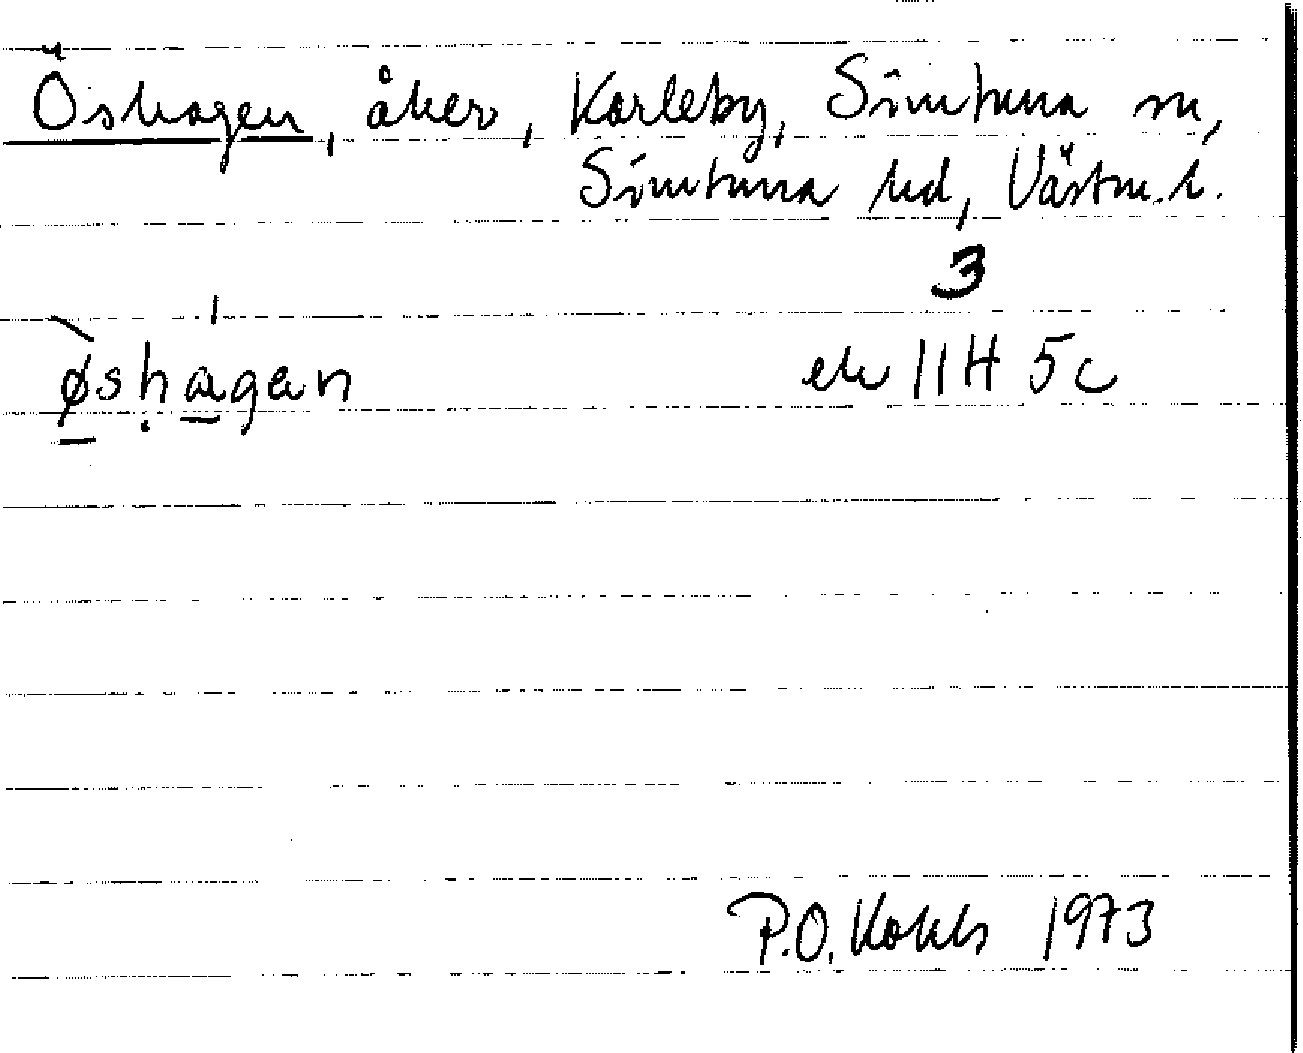 Öshagen, åker, Karleby, Simtuna sn,
Simtuna hd, Västm. l.
3
øshagan
ek 11H 5c
P.O. Kohls 1973